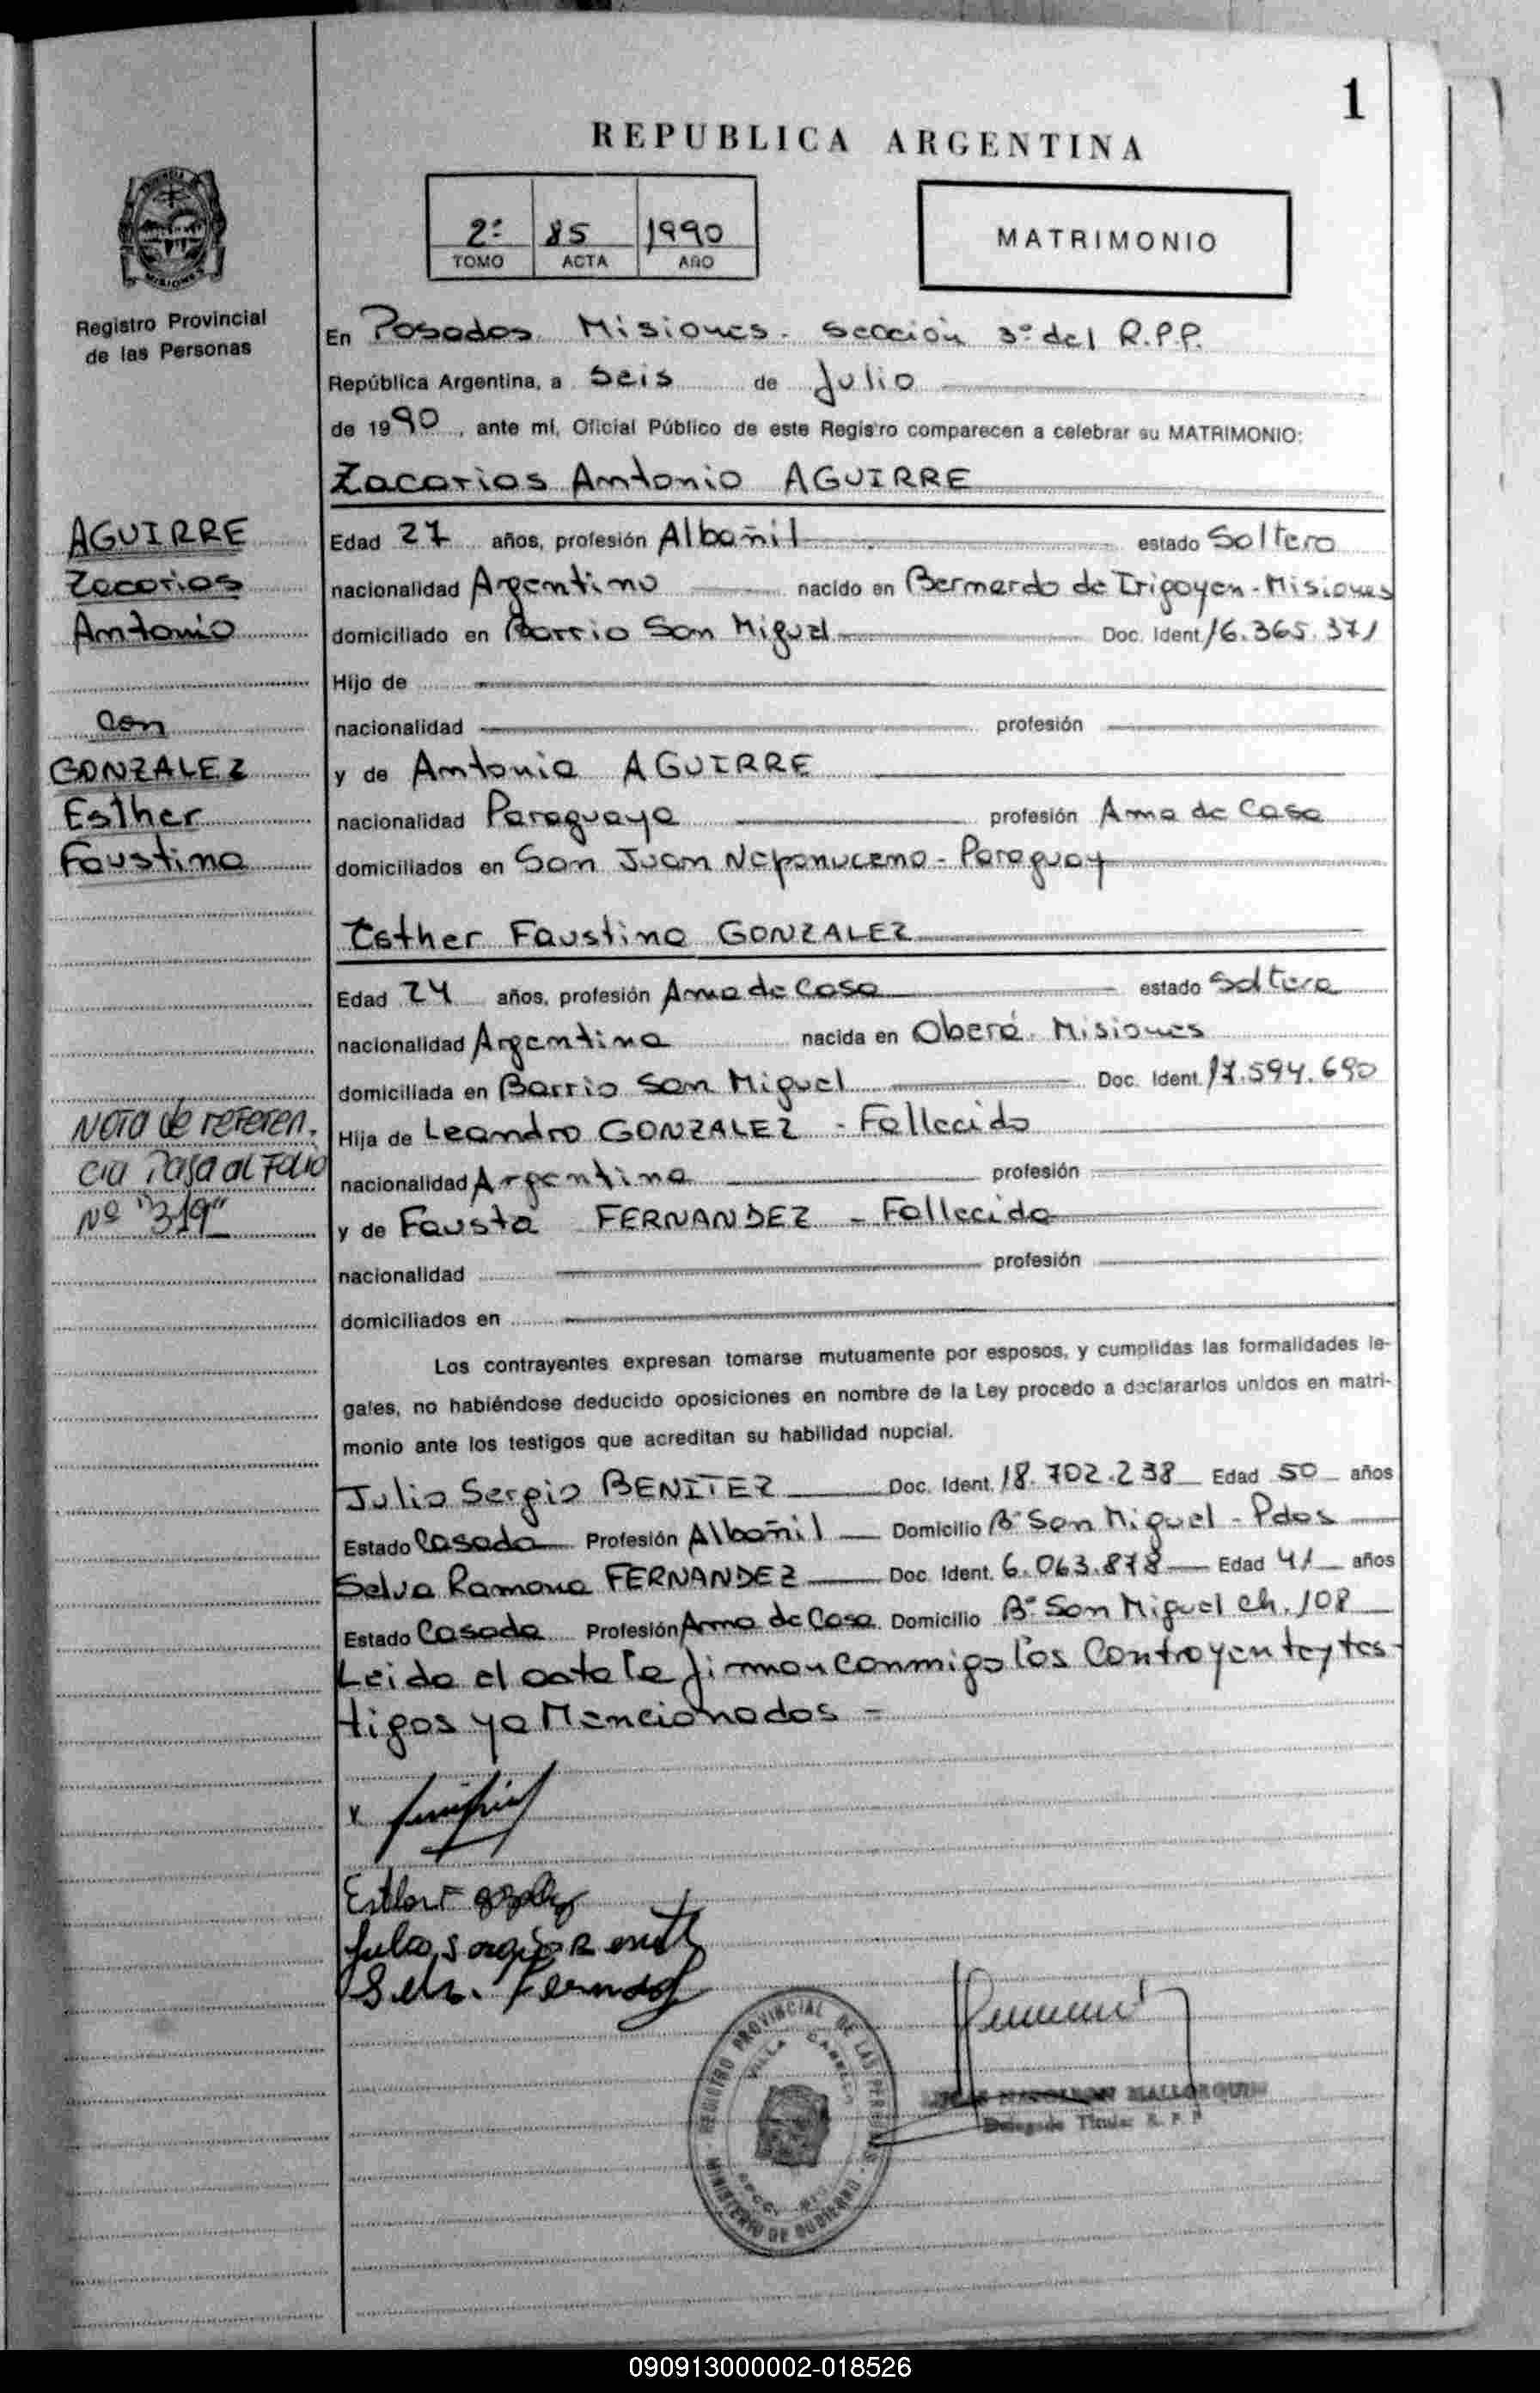 1
REPUBLICA ARGENTINA
2º 85 1990
TOMO ACTA AÑO
MATRIMONIO
PROVINCIA
MISIONES
Registro Provincial
de las Personas
En Posadas Misiones. Sección 3º del R.P.P.
República Argentina, a Seis de Julio
de 1990, ante mí, Oficial Público de este Registro comparecen a celebrar su MATRIMONIO:
Zacarias Antonio AGUIRRE
AGUIRRE
Zacarias
Antonio
con
GONZALEZ
Esther
Faustina
Edad 27 años, profesión Albañil estado Soltero
nacionalidad Argentino nacido en Bernardo de Irigoyen - Misiones
domiciliado en Barrio San Miguel Doc. Ident. 16.365.371
Hijo de
nacionalidad profesión
y de Antonia AGUIRRE
nacionalidad Paraguaya profesión Ama de Casa
domiciliados en San Juan Nepomuceno - Paraguay
Esther Faustina GONZALEZ
Edad 24 años, profesión Ama de Casa estado Soltera
nacionalidad Argentina nacida en Oberá. Misiones
domiciliada en Barrio San Miguel Doc. Ident. 17.594.690
Hija de Leandro GONZALEZ - Fallecido
nacionalidad Argentina profesión
y de Fausta FERNANDEZ - Fallecida
nacionalidad profesión
domiciliados en
Nota de referen.
cia Pasa al Folio
Nº "319"
Los contrayentes expresan tomarse mutuamente por esposos, y cumplidas las formalidades le-
gales, no habiéndose deducido oposiciones en nombre de la Ley procedo a declararlos unidos en matri-
monio ante los testigos que acreditan su habilidad nupcial.
Julio Sergio BENITEZ Doc. Ident. 18.702.238 Edad 50 años
Estado Casado Profesión Albañil Domicilio Bº San Miguel - Pdas
Selva Ramona FERNANDEZ Doc. Ident. 6.063.878 Edad 41 años
Estado Casada Profesión Ama de Casa Domicilio Bº San Miguel Ch. 108
Leida el acta la firman conmigo los Contrayente y tes-
tigos ya Mencionados -
REGISTRO PROVINCIAL DE LAS PERSONAS
VILLA
MINISTERIO DE GOBIERNO
NAPOLEON MALLORQUIN
Delegado Titular R. P. P.
090913000002-018526